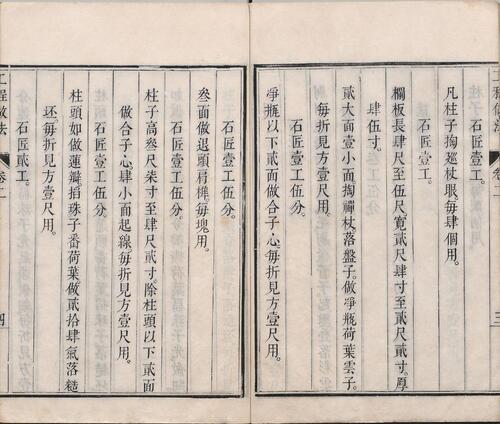 凡柱子掏尋杖眼。每肆個用。
石匠壹工。
欄板長肆尺至伍尺。寬貳尺肆寸至貳尺貳寸。厚
肆伍寸。
貳大面壹小面掏禪杖。落盤子。做凈瓶荷葉雲子。
每折見方壹尺用。
石匠壹工伍分。
凈瓶以下貳面做合子心。每折見方壹尺用。
三
石匠壹工伍分。
叁面做退頭肩榫。每塊用。
石匠壹工伍分。
柱子高叁尺柒寸至肆尺貳寸。除柱頭以下貳面
做合子心。肆小面起線。每折見方壹尺用。
石匠壹工伍分。
柱頭如做蓮瓣掐珠子番荷葉做貳拾肆氣落糙
坯。每折見方壹尺用。
石匠貳工。
工程做法
卷二
四